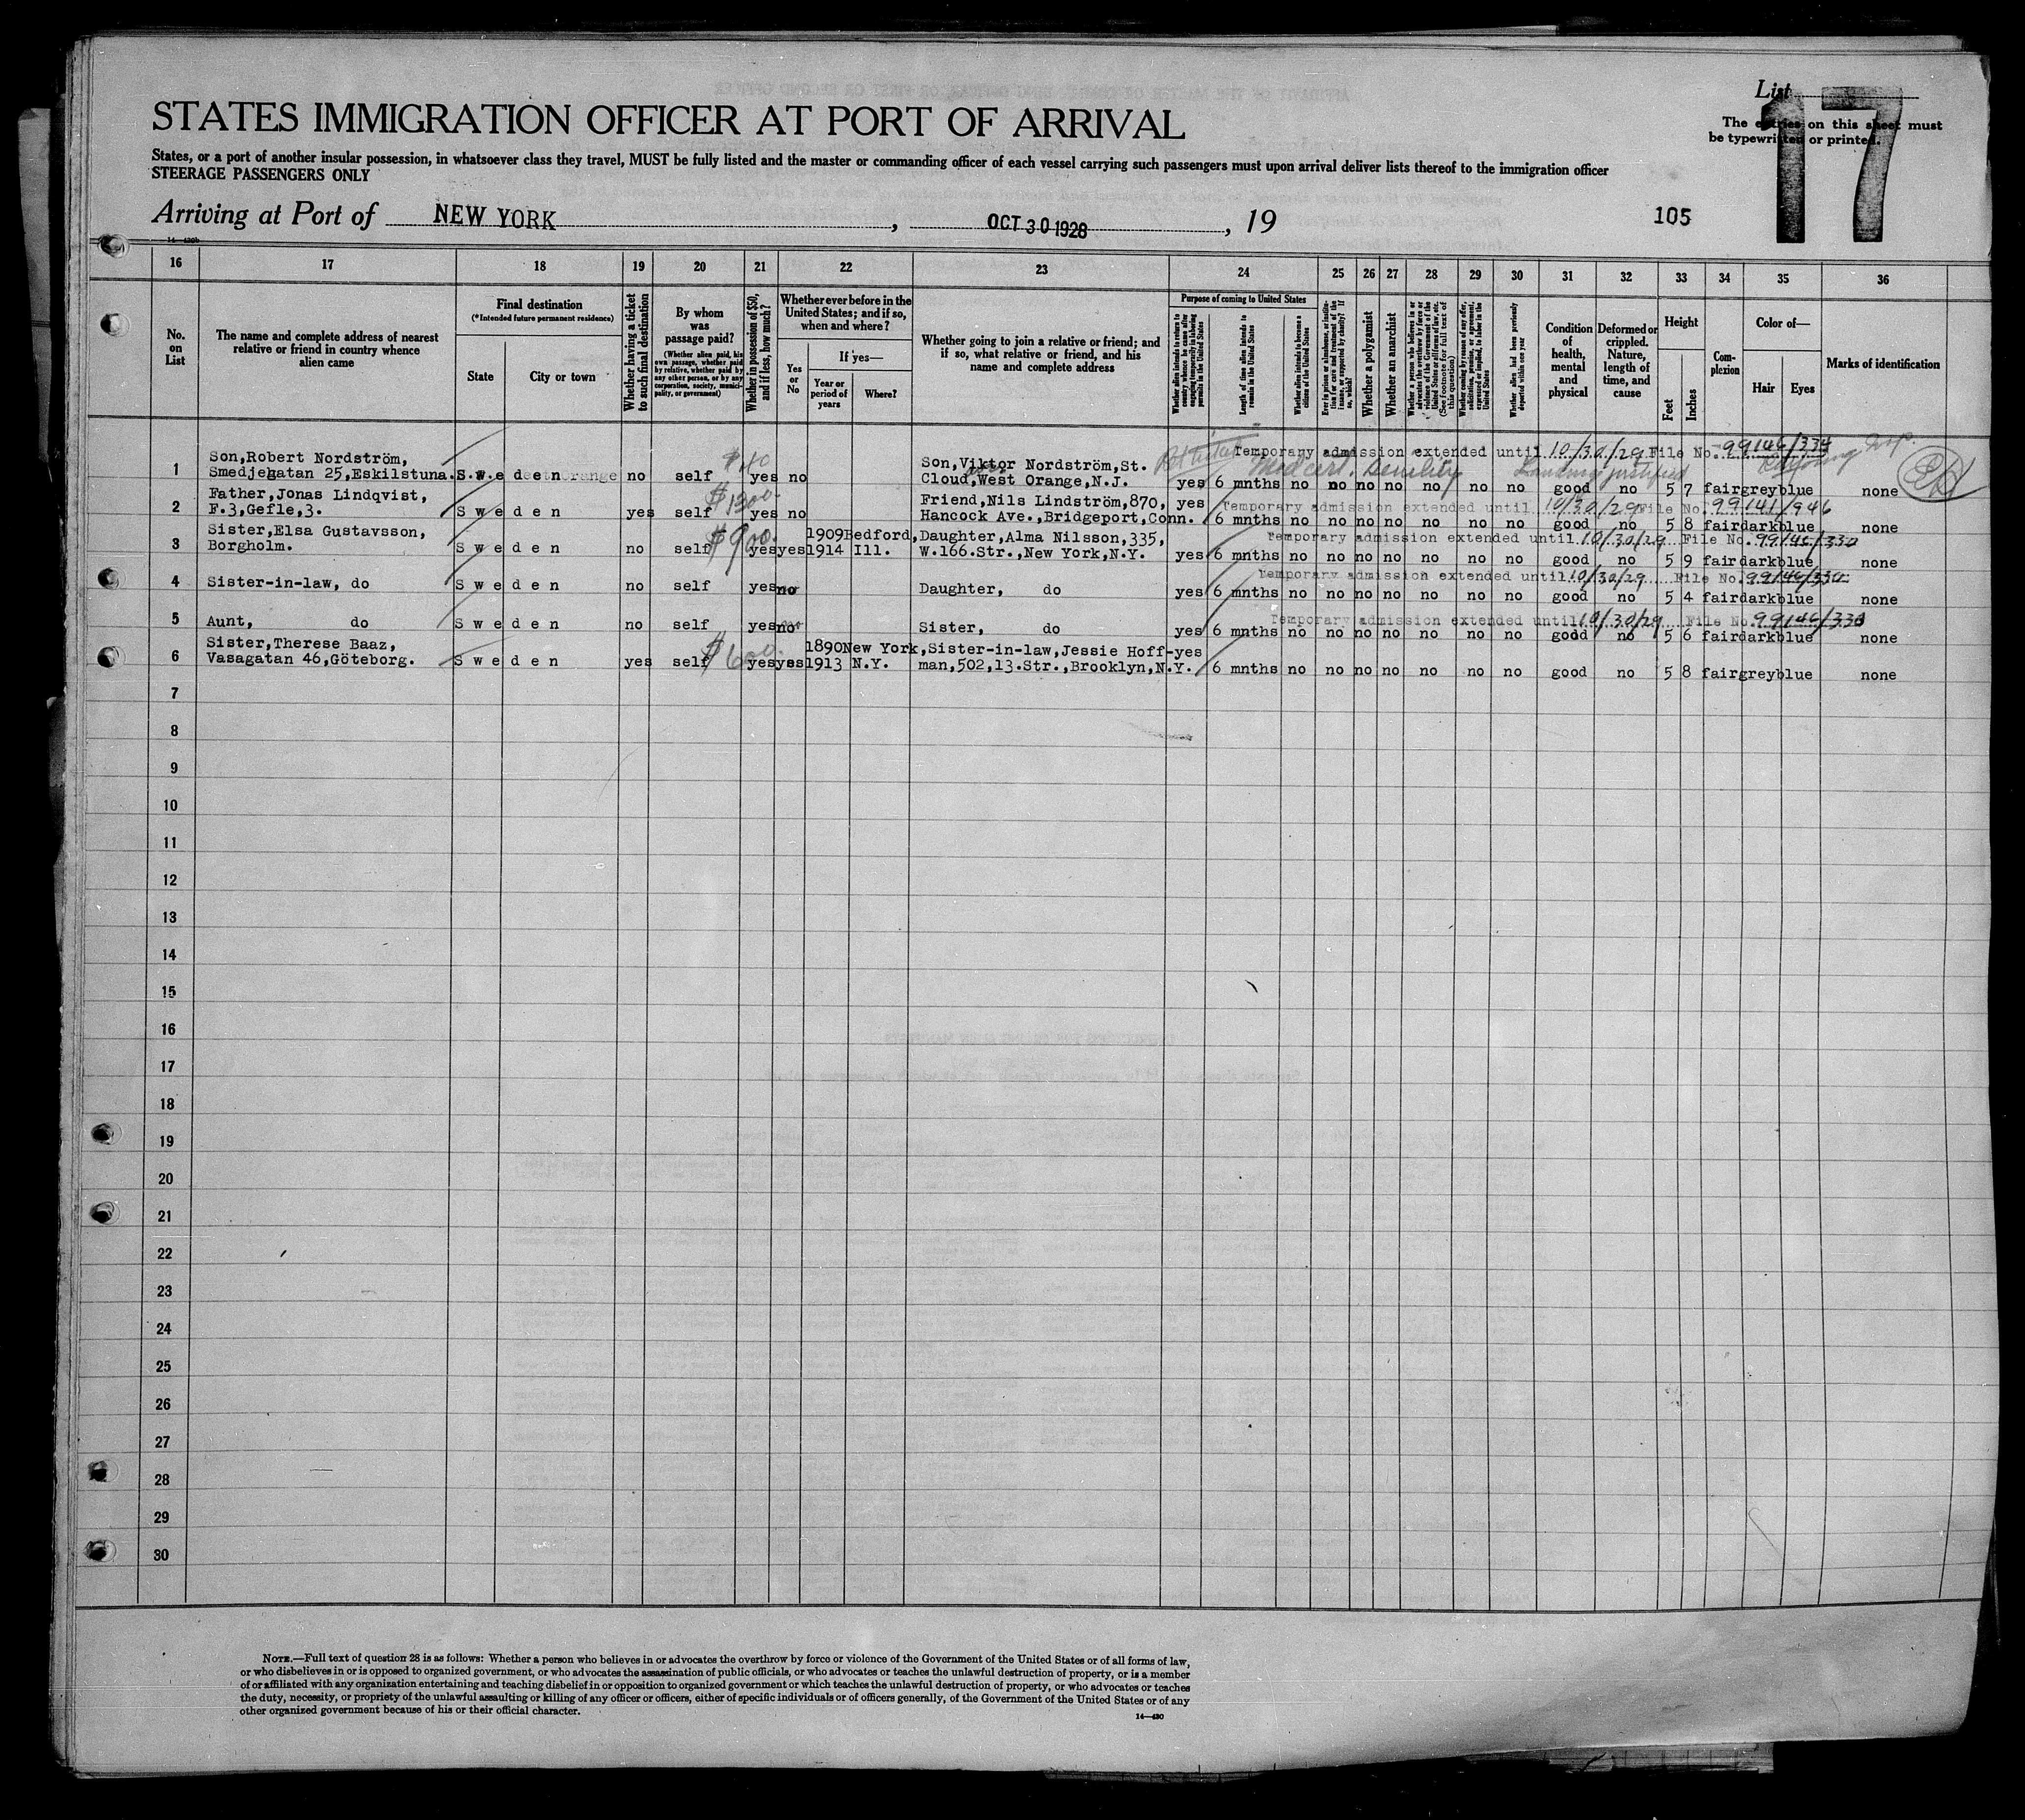 List
17
The entries on this sheet must
be typewritten or printed.
STATES IMMIGRATION OFFICER AT PORT OF ARRIVAL
States, or a port of another insular possession, in whatsoever class they travel, MUST be fully listed and the master or commanding officer of each vessel carrying such passengers must upon arrival deliver lists thereof to the immigration officer
STEERAGE PASSENGERS ONLY
Arriving at Port of NEW YORK, OCT 30 1928, 19
105
14—430b
16 17 18 19 20 21 22 23 24 25 26 27 28 29 30 31 32 33 34 35 36
No.
on
List
The name and complete address of nearest
relative or friend in country whence
alien came
Final destination
(*Intended future permanent residence)
State
City or town
Whether having a ticket
to such final destination
By whom
was
passage paid?
(Whether alien paid, his
own passage, whether paid
by relative, whether paid by
any other person, or by any
corporation, society, munici-
pality, or government)
Whether in possession of $50,
and if less, how much?
Whether ever before in the
United States; and if so,
when and where?
Yes
or
No
If yes—
Year or
period of
years
Where?
Whether going to join a relative or friend; and
if so, what relative or friend, and his
name and complete address
Purpose of coming to United States
Whether alien intends to return to
country whence he came after
engaging temporarily in laboring
pursuits in the United States
Length of time alien intends to
remain in the United States
Whether alien intends to become a
citizen of the United States
Ever in prison or almshouse, or institu-
tion for care and treatment of the
insane, or supported by charity? If
so, which?
Whether a polygamist
Whether an anarchist
Whether a person who believes in or
advocates the overthrow by force or
violence of the Government of the
United States or all forms of law, etc.
(See footnote for full text of
this question)
Whether coming by reason of any offer,
solicitation, promise, or agreement,
expressed or implied, to labor in the
United States
Whether alien had been previously
deported within one year
Condition
of
health,
mental
and
physical
Deformed or
crippled.
Nature,
length of
time, and
cause
Height
Feet
Inches
Com-
plexion
Color of—
Hair
Eyes
Marks of identification
Temporary admission extended until 10/30/29 File No. 99146/334
Med cert. Senility Landing justified
1 Son,Robert Nordström,
Smedjegatan 25,Eskilstuna. Sweden no self $40 yes no Son,Viktor Nordström,St.
Cloud,West Orange,N.J. yes 6 mnths no no no no no no no good no 5 7 fair grey blue none
Temporary admission extended until 10/30/29 File No. 99141/946
2 Father,Jonas Lindqvist,
F.3,Gefle,3. Sweden yes self $1300. yes no Friend,Nils Lindström,870,
Hancock Ave.,Bridgeport,Conn. yes 6 mnths no no no no no no no good no 5 8 fair dark blue none
Temporary admission extended until 10/30/29 File No. 99146/330
3 Sister,Elsa Gustavsson,
Borgholm. Sweden no self $900. yes yes 1909 1914 Bedford, Ill. Daughter,Alma Nilsson,335,
W.166.Str.,New York,N.Y. yes 6 mnths no no no no no no no good no 5 9 fair dark blue none
Temporary admission extended until 10/30/29 File No. 99146/330
4 Sister-in-law, do Sweden no self yes no Daughter, do yes 6 mnths no no no no no no no good no 5 4 fair dark blue none
Temporary admission extended until 10/30/29 File No. 99146/330
5 Aunt, do Sweden no self yes no Sister, do yes 6 mnths no no no no no no no good no 5 6 fair dark blue none
6 Sister,Therese Baaz,
Vasagatan 46,Göteborg. Sweden yes self $600. yes yes 1890 1913 New York, N.Y. Sister-in-law,Jessie Hoff-
man,502,13.Str.,Brooklyn,N.Y. yes 6 mnths no no no no no no no good no 5 8 fair grey blue none
7
8
9
10
11
12
13
14
15
16
17
18
19
20
21
22
23
24
25
26
27
28
29
30
NOTE.—Full text of question 28 is as follows: Whether a person who believes in or advocates the overthrow by force or violence of the Government of the United States or of all forms of law,
or who disbelieves in or is opposed to organized government, or who advocates the assassination of public officials, or who advocates or teaches the unlawful destruction of property, or is a member
of or affiliated with any organization entertaining and teaching disbelief in or opposition to organized government or which teaches the unlawful destruction of property, or who advocates or teaches
the duty, necessity, or propriety of the unlawful assaulting or killing of any officer or officers, either of specific individuals or of officers generally, of the Government of the United States or of any
other organized government because of his or their official character.
14—430